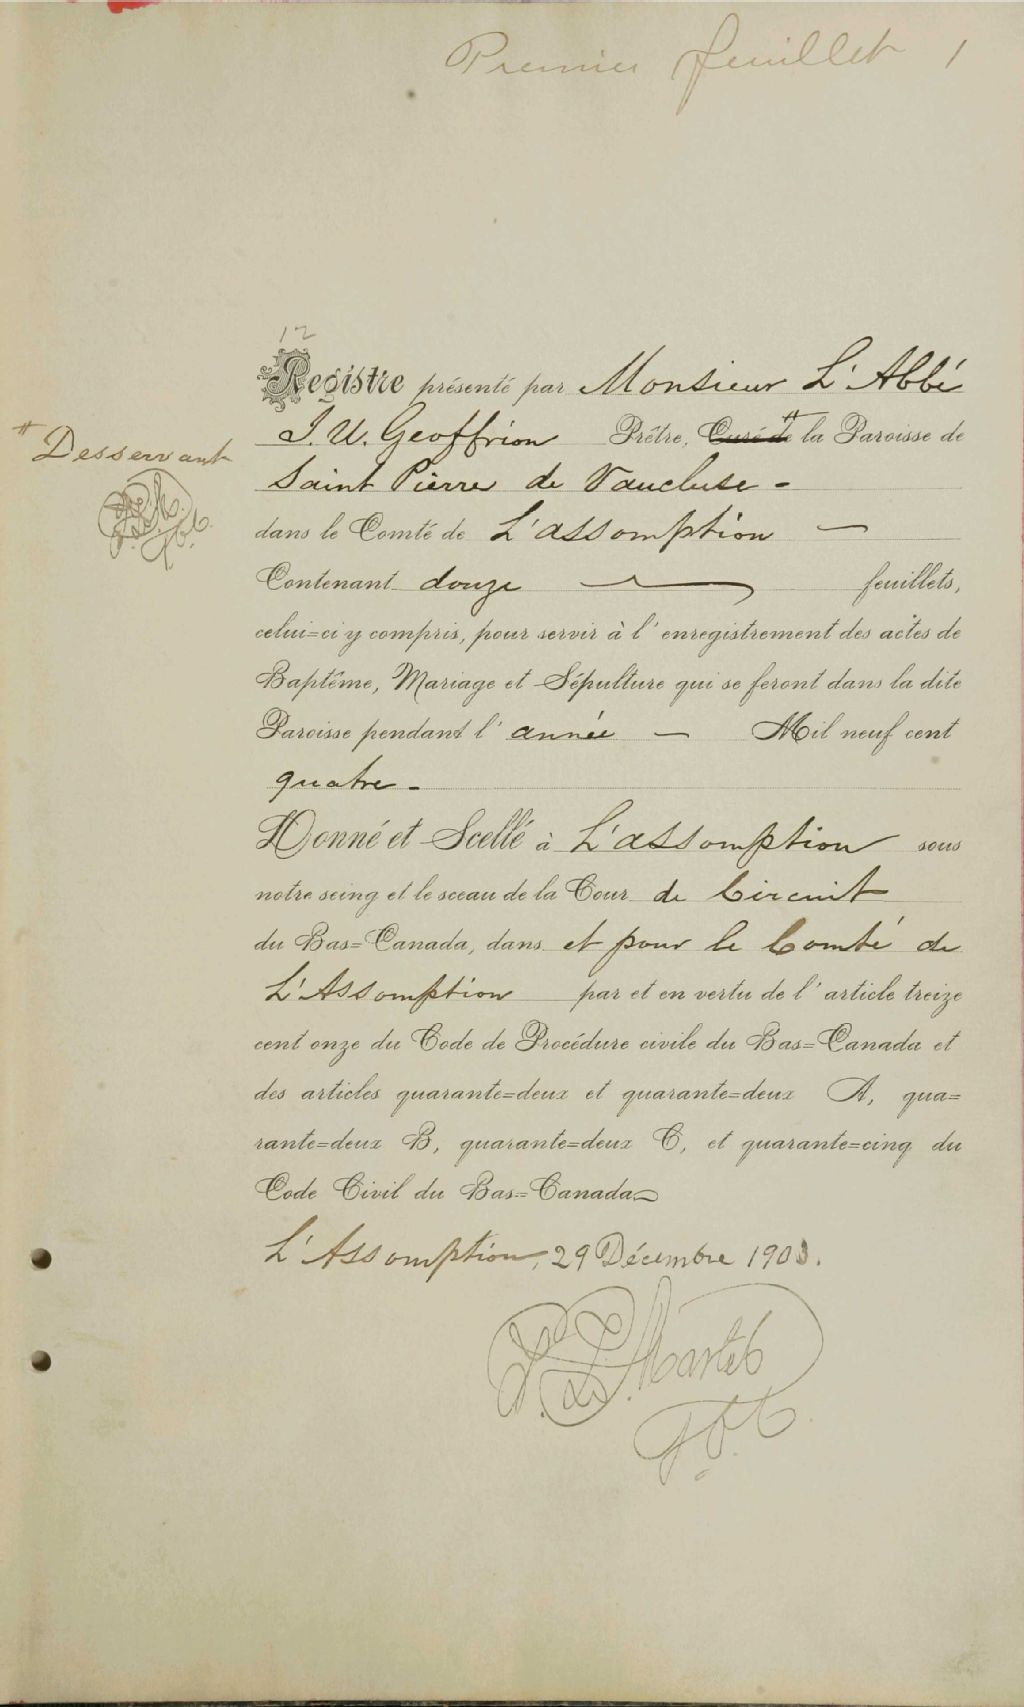 Premier feuillet 1
12
Registre présenté par Monsieur L'Abbé
J. U. Geoffrion Prêtre, Curé de # la Paroisse de
# Desservant
Saint Pierre de Vaucluse -
dans le Comté de L'assomption —
Contenant douze — feuillets,
celui=ci y compris, pour servir à l'enregistrement des actes de
Baptême, Mariage et Sépulture qui se feront dans la dite
Paroisse pendant l'année — Mil neuf cent
quatre -
Donné et Scellé à L'assomption sous
notre seing et le sceau de la Cour de Circuit
du Bas=Canada, dans et pour le Comté de
L'Assomption par et en vertu de l'article treize
cent onze du Code de Procédure civile du Bas=Canada et
des articles quarante=deux et quarante=deux A, qua=
rante=deux B, quarante=deux C, et quarante=cinq du
Code Civil du Bas=Canada
L'Assomption, 29 Décembre 1903.
Martel